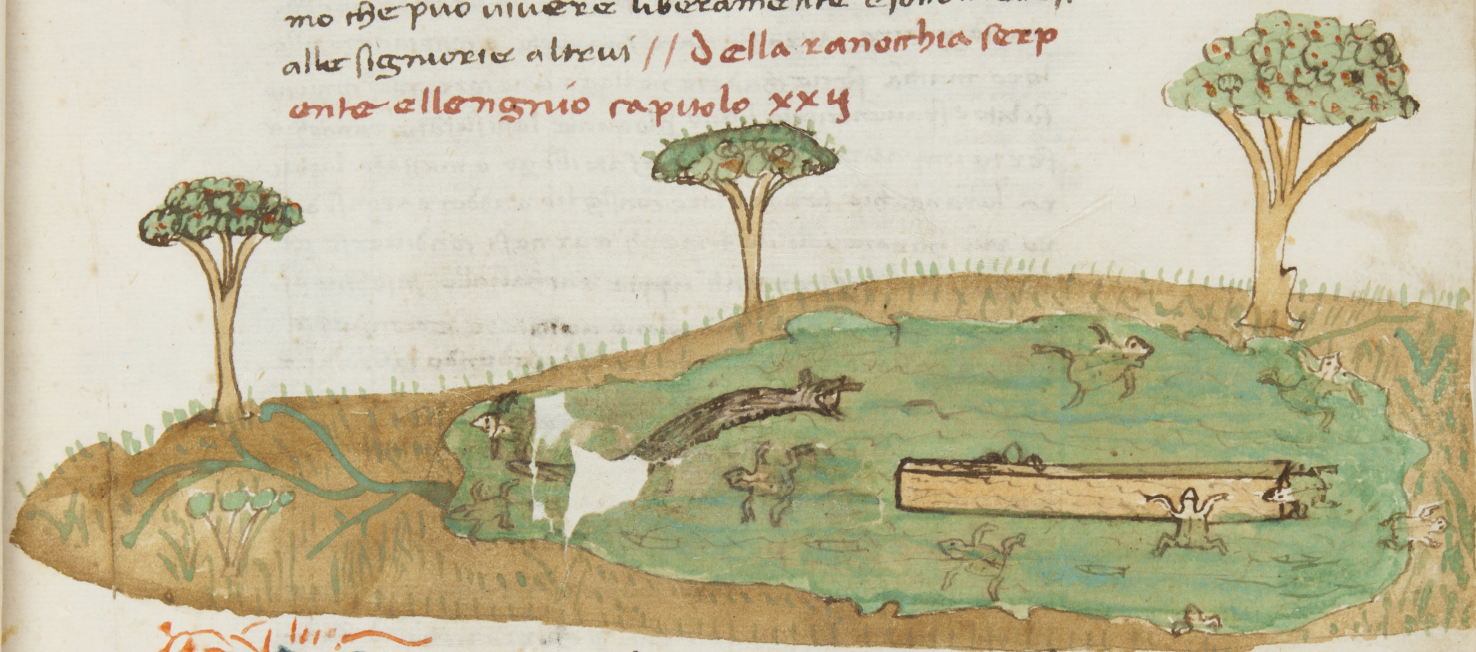 mo che puo vivere liberamente
alle signiorie altrui // Della ranocchia serp
ente ellengnio capitolo xxij